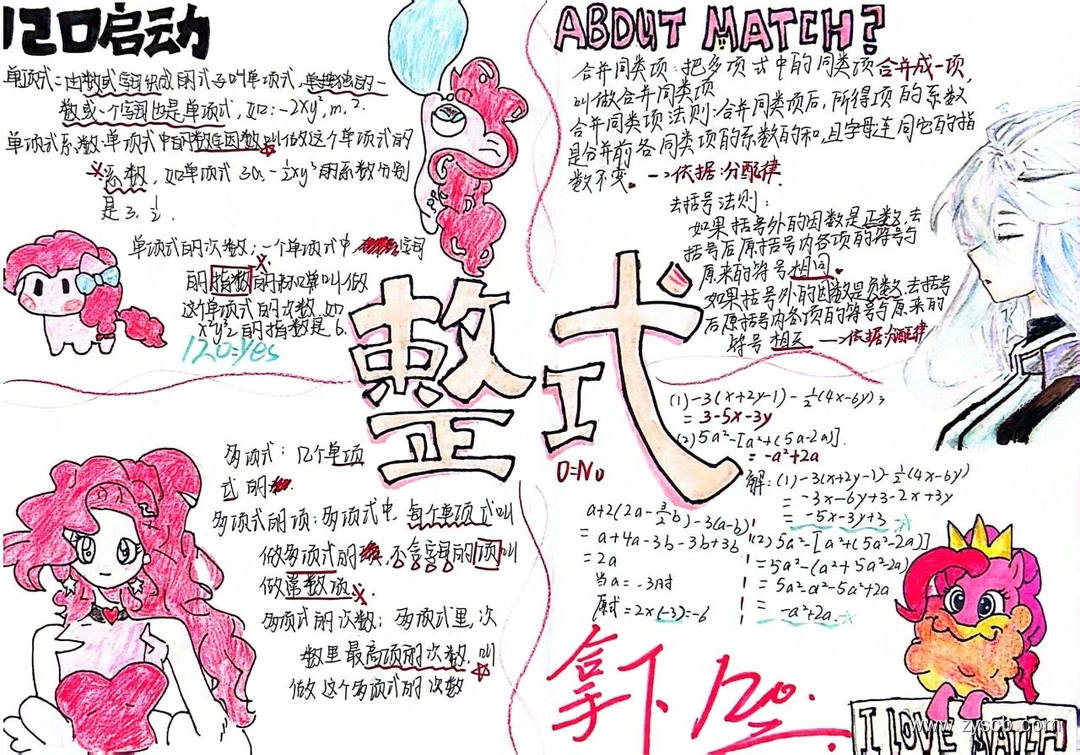 120启动
单项式:由数或字母组成的式子叫单项式,单独的一
数或一个字母也是单项式,如:-2xy²,m,2.
单项式系数:单项式中的数字因数叫做这个单项式的
系数,如单项式 3a,-½xy³的系数分别
是 3,½.
单项式的次数:一个单项式中 字母
的指数的和叫做
这个单项式的次数,如
的指数是 6.
120=Yes
ABOUT MATCH?
合并同类项:把多项式中的同类项合并成一项,
叫做合并同类项
合并同类项法则:合并同类项后,所得项的系数
是合并前各同类项的系数的和,且字母连同它的指
数不变。—>依据:分配律
去括号法则:
如果括号外的因数是正数,去
括号后原括号内各项的符号与
原来的符号相同.
如果括号外的因数是负数,去括号
后原括号内各项的符号与原来的
符号相反 —>依据:分配律
整式
多项式:几个单项
式的和.
多项式的项:多项式中,每个单项式叫
做多项式的项,不含字母的项叫
做常数项.
多项式的次数:多项式里,次
数里最高项的次数,叫
做这个多项式的次数
(1)-3(x+2y-1)-½(4x-6y);
= 3-5x-3y
(2)5a²-[a²+(5a-2a)].
= -a²+2a
0=No
解:(1)-3(x+2y-1)-½(4x-6y)
= -3x-6y+3-2x+3y
= -5x-3y+3
(2)5a²-[a²+(5a²-2a)]
= 5a²-(a²+5a²-2a)
= 5a²-a²-5a²+2a
= -a²+2a.
a+2(2a-3/2b)-3(a-b)
= a+4a-3b-3b+3b
= 2a
当a=-3时
原式=2×(-3)=-6
拿下120.
I LOVE MATCH
www.zyscb.com